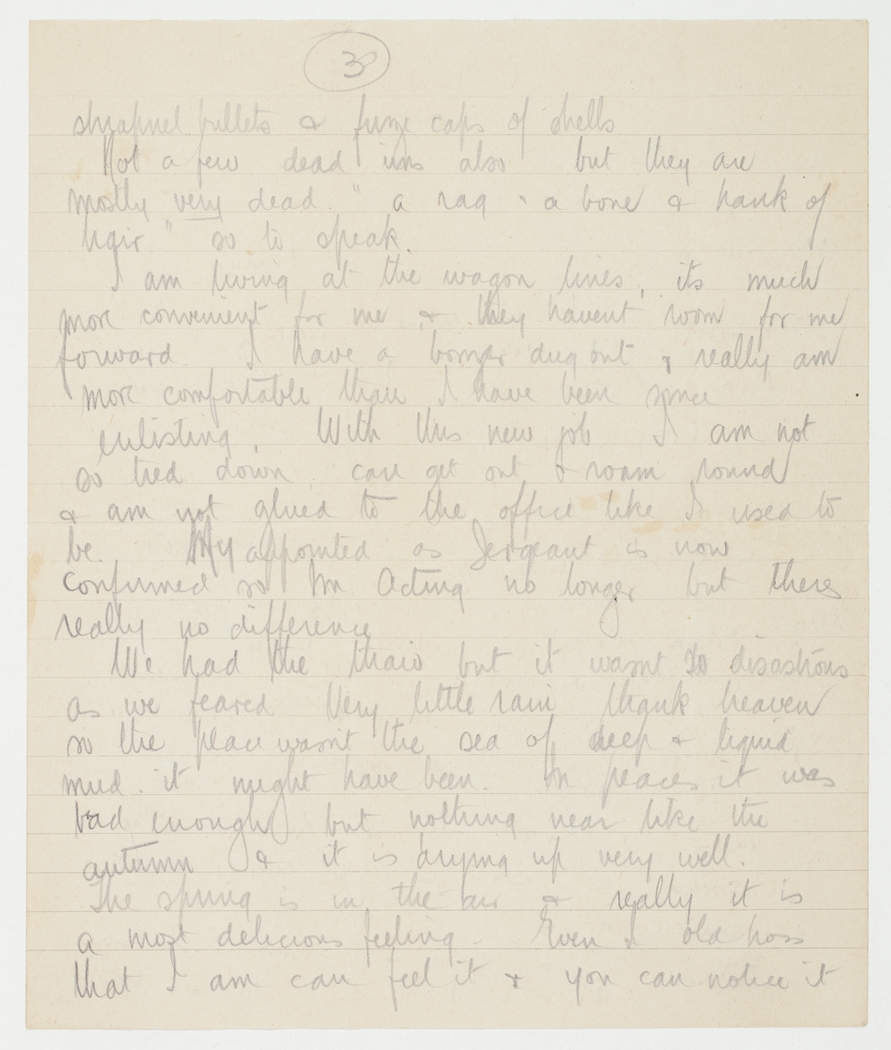 3
shrapnel bullets & fuze caps of shells
Not a few dead uns also but they are
mostly very dead. " a rag & a bone & hank of
hair" so to speak.
I am living at the wagon lines, its much
more convenient for me & they havent room for me
forward. I have a bonzer dug out & really am
more comfortable than I have been since
enlisting. With this new job I am not
so tied down can get out & roam round
& am not glued to the office like I used to
be. My appointed as Sergeant is now
confirmed so Im Acting no longer but theres
really no difference
We had the thaw but it wasnt so disastrous
as we feared Very little rain thank heaven
so the place wasnt the sea of deep & liquid
mud it might have been. In places it was
bad enough but nothing near like the
autumn & it is drying up very well.
The spring is in the air & really it is
a most delicious feeling. Even I old hoss
that I am can feel it & you can notice it